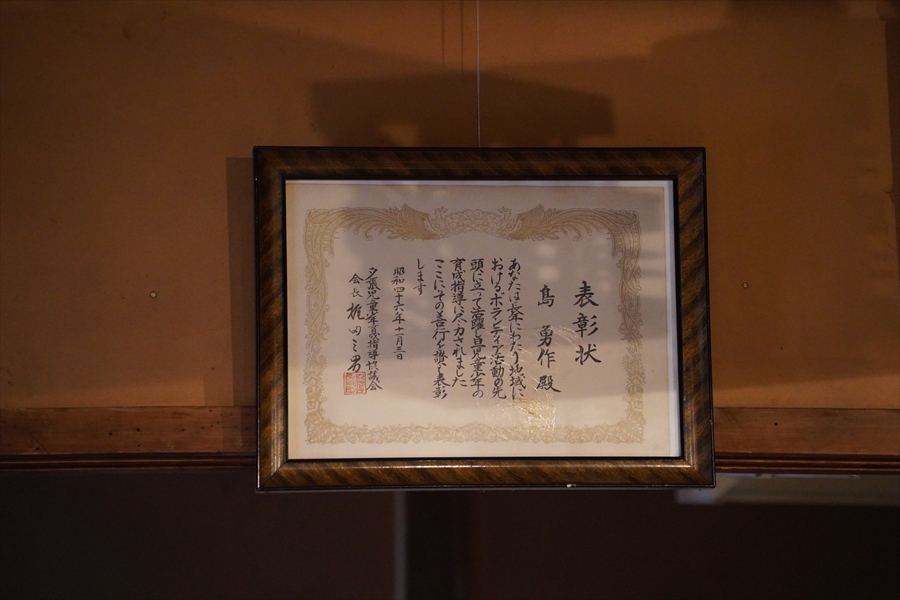 表彰状
島 勇作 殿
あなたは長年にわたり地域に
おけるボランティア活動の先
頭に立って活躍し且児童少年の
育成指導に尽力されました
ここにその善行を讃え表彰
します
昭和四十六年十一月三日
夕張児童少年育成指導協議会
会長